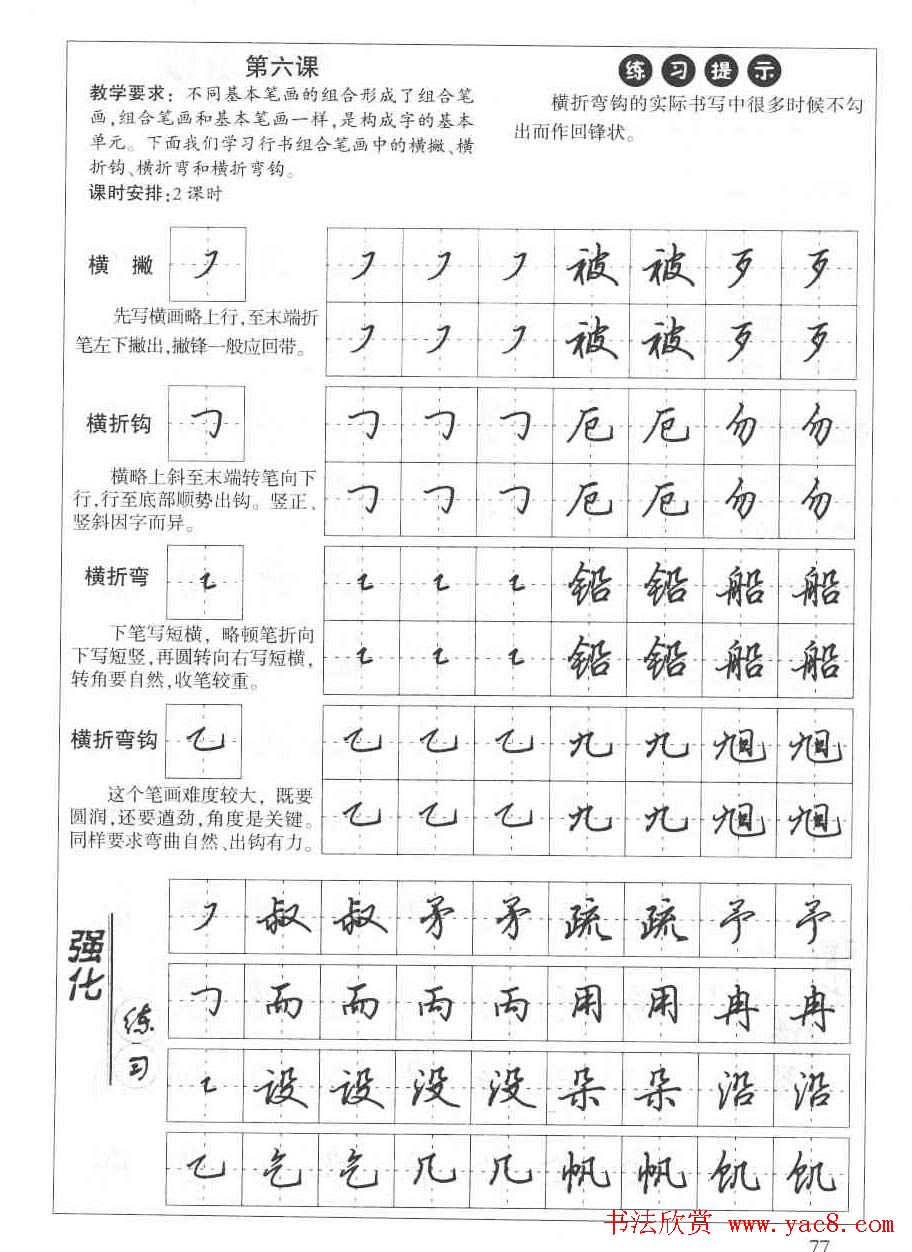 第六课
教学要求：不同基本笔画的组合形成了组合笔
画,组合笔画和基本笔画一样,是构成字的基本
单元。下面我们学习行书组合笔画中的横撇、横
折钩、横折弯和横折弯钩。
课时安排:2课时
练习提示
横折弯钩的实际书写中很多时候不勾
出而作回锋状。
横 撇
先写横画略上行,至末端折
笔左下撇出,撇锋一般应回带。
㇇ ㇇ ㇇ 被 被 歹 歹
㇇ ㇇ ㇇ 被 被 歹 歹
横折钩
横略上斜至末端转笔向下
行,行至底部顺势出钩。竖正、
竖斜因字而异。
㇆ ㇆ ㇆ 厄 厄 勿 勿
㇆ ㇆ ㇆ 厄 厄 勿 勿
横折弯
下笔写短横，略顿笔折向
下写短竖,再圆转向右写短横，
转角要自然,收笔较重。
㇍ ㇍ ㇍ 铅 铅 船 船
㇍ ㇍ ㇍ 铅 铅 船 船
横折弯钩
这个笔画难度较大，既要
圆润,还要遒劲,角度是关键。
同样要求弯曲自然、出钩有力。
乙 乙 乙 九 九 旭 旭
乙 乙 乙 九 九 旭 旭
强化
练习
㇇ 叔 叔 矛 矛 疏 疏 予 予
㇆ 而 而 丙 丙 用 用 冉 冉
㇍ 设 设 没 没 朵 朵 沿 沿
乙 乞 乞 几 几 帆 帆 饥 饥
书法欣赏 www.yac8.com
77